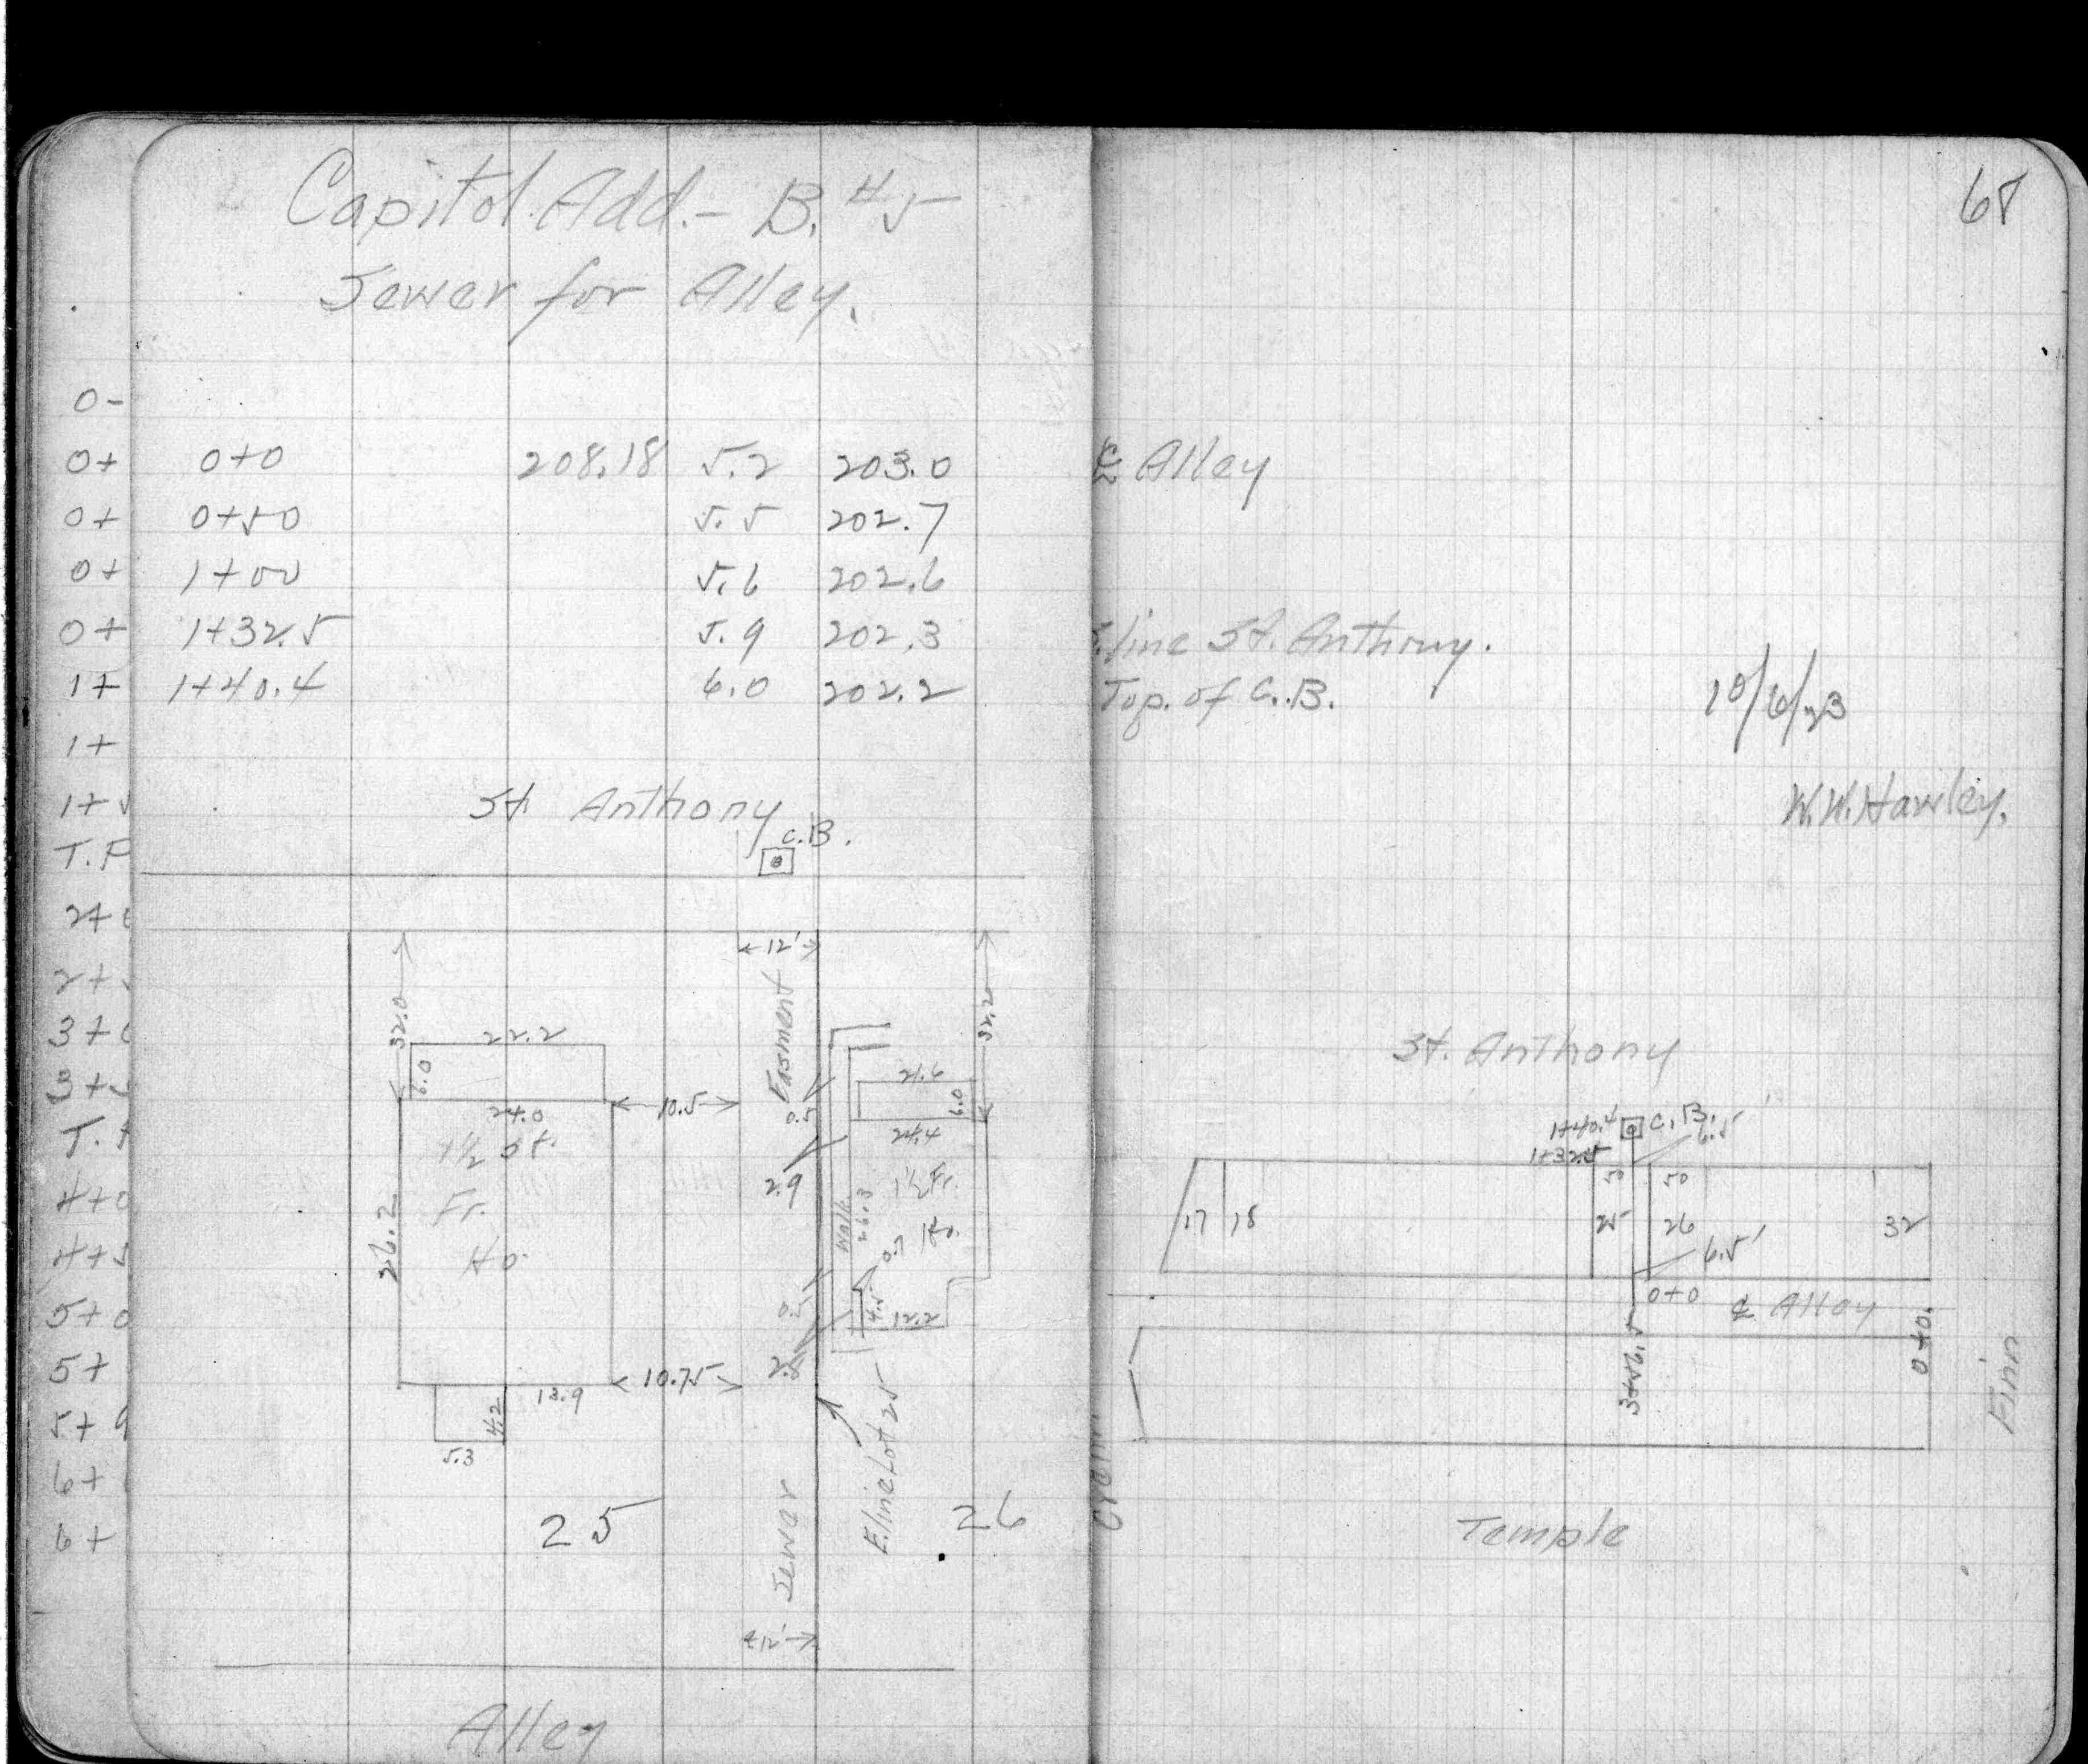 Capitol Add. - B. 45
Sewer for Alley.
68
0-
0+
0+
0+
0+
1+
1+
1+
T.P
2+
2+
3+
3+
T.
4+0
4+5
5+0
5+
5+9
6+
6+
0+0 208.18 5.2 203.0 ℄ Alley
0+50 5.5 202.7
1+00 5.6 202.6
1+32.5 5.9 202.3 line St. Anthony.
1+40.4 6.0 202.2 Top. of C.B.
10/6/23
W.W. Hawley.
St Anthony
C.B.
←12'→
Easment
32.0
22.2
6.0
24.0
10.5
1½ St.
Fr.
Ho.
26.2
10.75
13.9
4.2
5.3
25
0.5
2.9
0.5
2.5
Walk
26.3
21.6
6.0
24.4
32.2
1½ Fr.
Ho.
0.7
4.5
12.2
E. line Lot 25
26
Sewer
←12'→
Alley
St. Anthony
1+40.4 C.B.
1+32.5 6.5'
50 50
17 18 25 26 32
6.5'
0+0
℄ Alley
3+56.5
0+0.
Finn
Temple